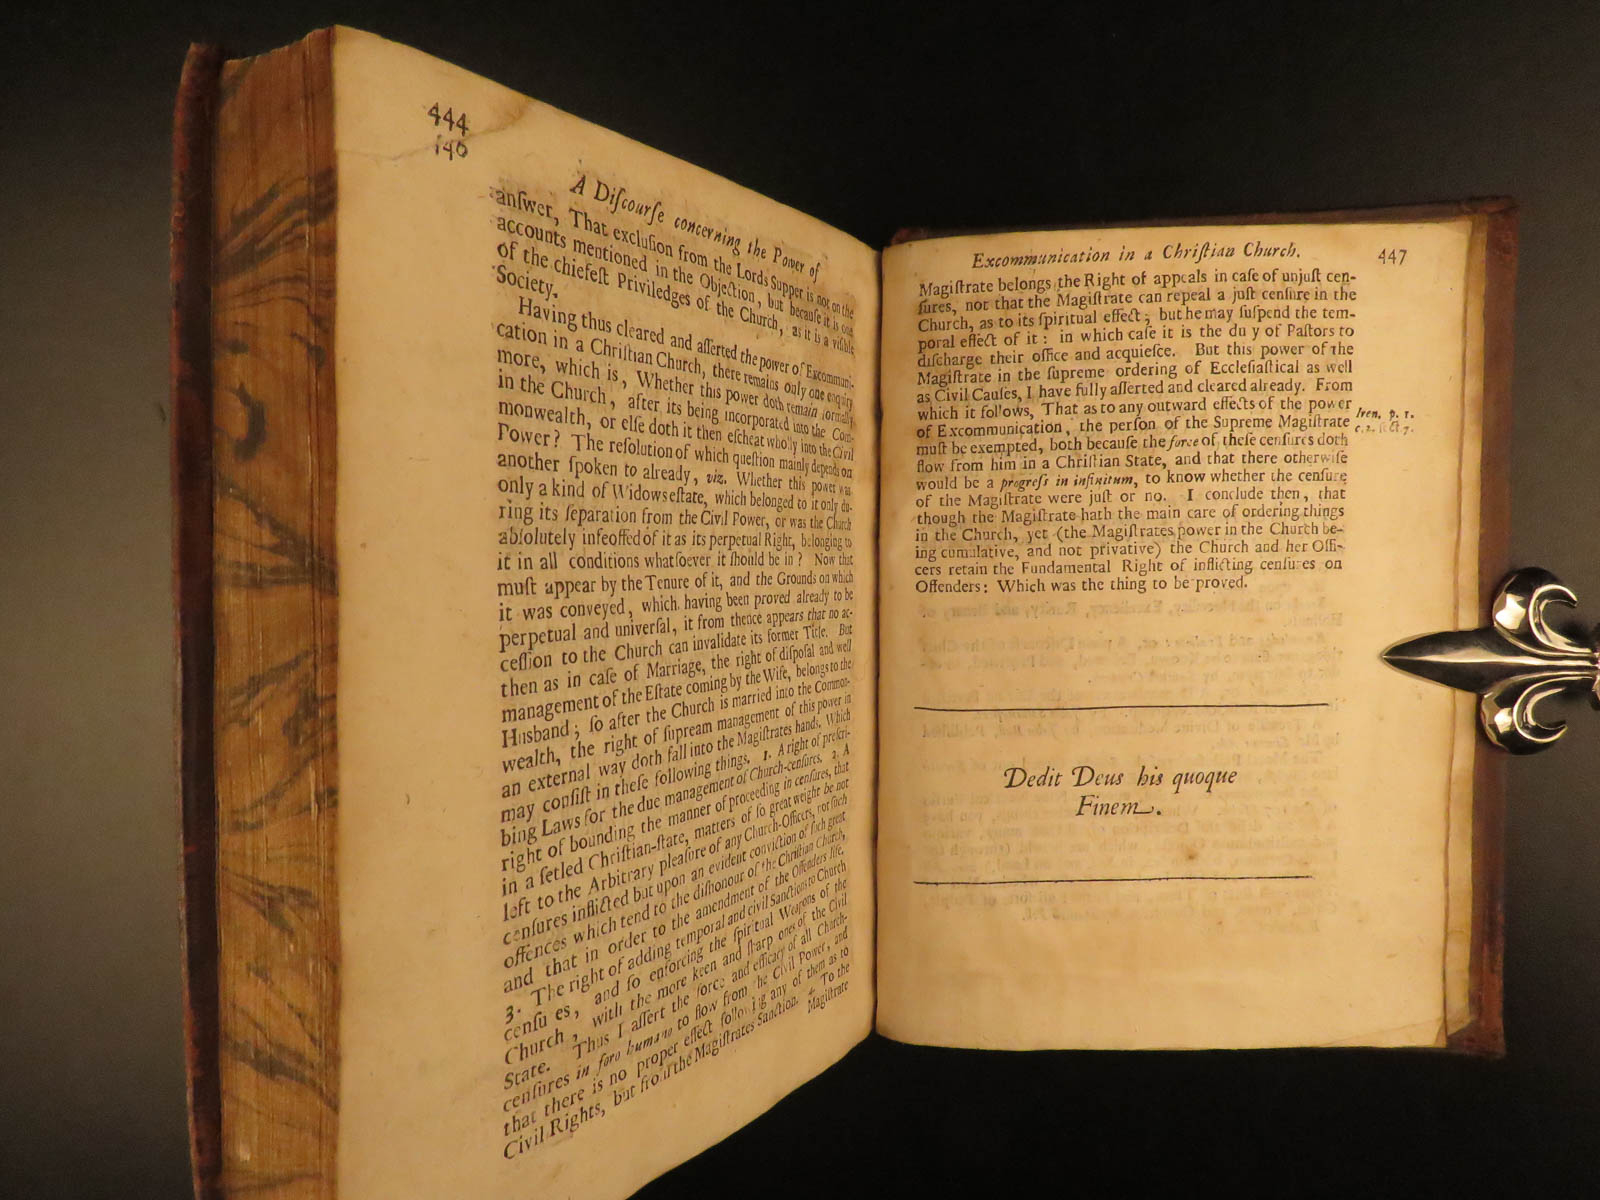 444
140
A Diſcourſe concerning the Power of
anſwer, That excluſion from the Lords Supper is not on the
accounts mentioned in the Objection, but becauſe it is one
of the chiefeſt Priviledges of the Church, as it is a viſible
Society.
Having thus cleared and aſſerted the power of Excommuni-
cation in a Chriſtian Church, there remains only one enquiry
more, which is, Whether this power doth remain formally
in the Church, after its being incorporated into the Com-
monwealth, or elſe doth it then eſcheat wholly into the Civil
Power? The reſolution of which queſtion mainly depends on
another ſpoken to already, viz. Whether this power was
only a kind of Widowseſtate, which belonged to it only du-
ring its ſeparation from the Civil Power, or was the Church
abſolutely infeoffed of it as its perpetual Right, belonging to
it in all conditions whatſoever it ſhould be in? Now that
muſt appear by the Tenure of it, and the Grounds on which
it was conveyed, which having been proved already to be
perpetual and univerſal, it from thence appears that no ac-
ceſſion to the Church can invalidate its former Title. But
then as in caſe of Marriage, the right of diſpoſal and well
management of the Eſtate coming by the Wife, belongs to the
Husband; ſo after the Church is married into the Common-
wealth, the right of ſupream management of this power in
an external way doth fall into the Magiſtrates hands. Which
may conſiſt in theſe following things. 1. A right of preſcri-
bing Laws for the due management of Church-cenſures. 2. A
right of bounding the manner of proceeding in cenſures, that
in a ſetled Chriſtian-ſtate, matters of ſo great weight be not
left to the Arbitrary pleaſure of any Church-Officers, nor ſuch
cenſures inflicted but upon an evident conviction of ſuch great
offences which tend to the diſhonour of the Chriſtian Church,
and that in order to the amendment of the Offenders life.
3. The right of adding temporal and civil Sanctions to Church
cenſu es, and ſo enforcing the ſpiritual Weapons of the
Church, with the more keen and ſharp ones of the Civil
State. Thus I aſſert the force and efficacy of all Church-
cenſures in foro humano to flow from the Civil Power, and
that there is no proper effect following any of them as to
Civil Rights, but from the Magiſtrates Sanction. 4. To the
Magiſtrate
Excommunication in a Chriſtian Church. 447
Magiſtrate belongs the Right of appeals in caſe of unjuſt cen-
ſures, not that the Magiſtrate can repeal a juſt cenſure in the
Church, as to its ſpiritual effect; but he may ſuſpend the tem-
poral effect of it: in which caſe it is the du y of Paſtors to
diſcharge their office and acquieſce. But this power of the
Magiſtrate in the ſupreme ordering of Eccleſiaſtical as well
as Civil Cauſes, I have fully aſſerted and cleared already. From
which it follows, That as to any outward effects of the power
of Excommunication, the perſon of the Supreme Magiſtrate
muſt be exempted, both becauſe the force of theſe cenſures doth
flow from him in a Chriſtian State, and that there otherwiſe
would be a progreſs in infinitum, to know whether the cenſure
of the Magiſtrate were juſt or no. I conclude then, that
though the Magiſtrate hath the main care of ordering things
in the Church, yet (the Magiſtrates power in the Church be-
ing cumulative, and not privative) the Church and her Offi-
cers retain the Fundamental Right of inflicting cenſures on
Offenders: Which was the thing to be proved.
Iren. p. 1.
c. 2. ſect 7.
Dedit Deus his quoque
Finem.